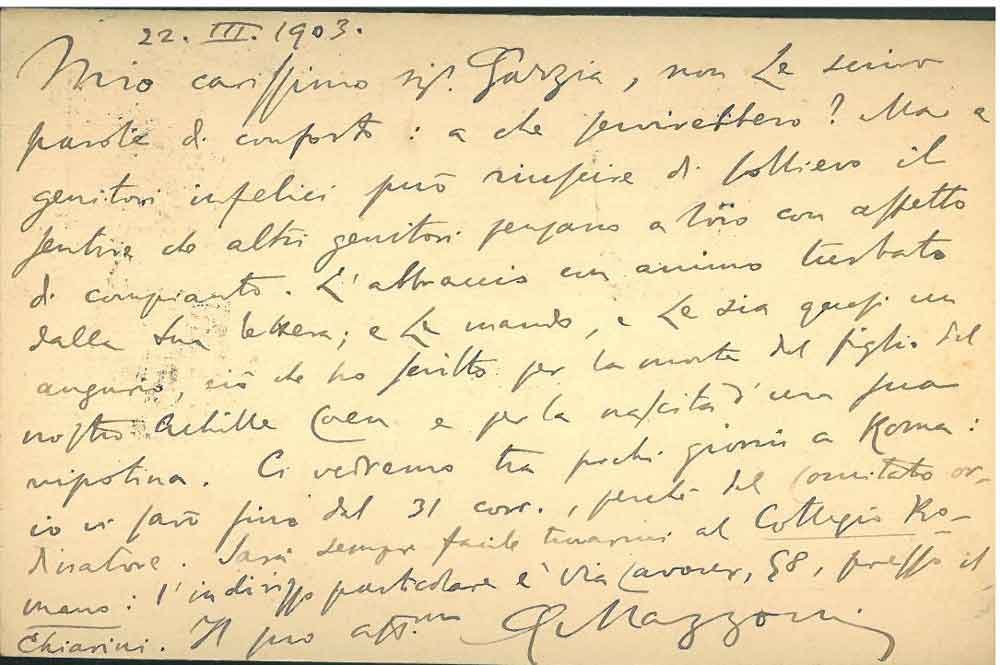 22. III. 1903.
Mio carissimo sigr. Garzia, non Le scrivo
parole di conforto: a che servirebbero? Ma a
genitori infelici può riuscire di sollievo il
sentire che altri genitori pensano a loro con affetto
di compianto. L'abbraccio con animo turbato
dalla Sua lettera; e Le mando, e Le sia quasi un
augurio, ciò che ho scritto per la morte del figlio del
nostro Achille Coen e per la nascita d'una sua
nipotina. Ci vedremo tra pochi giorni a Roma:
io vi sarò fino dal 31 corr., perché del Comitato or-
dinatore. Sarà sempre facile trovarmi al Collegio Ro-
mano: l'indirizzo particolare è Via Cavour, 58, presso il
Chiarini. Il suo aff.mo G. Mazzoni